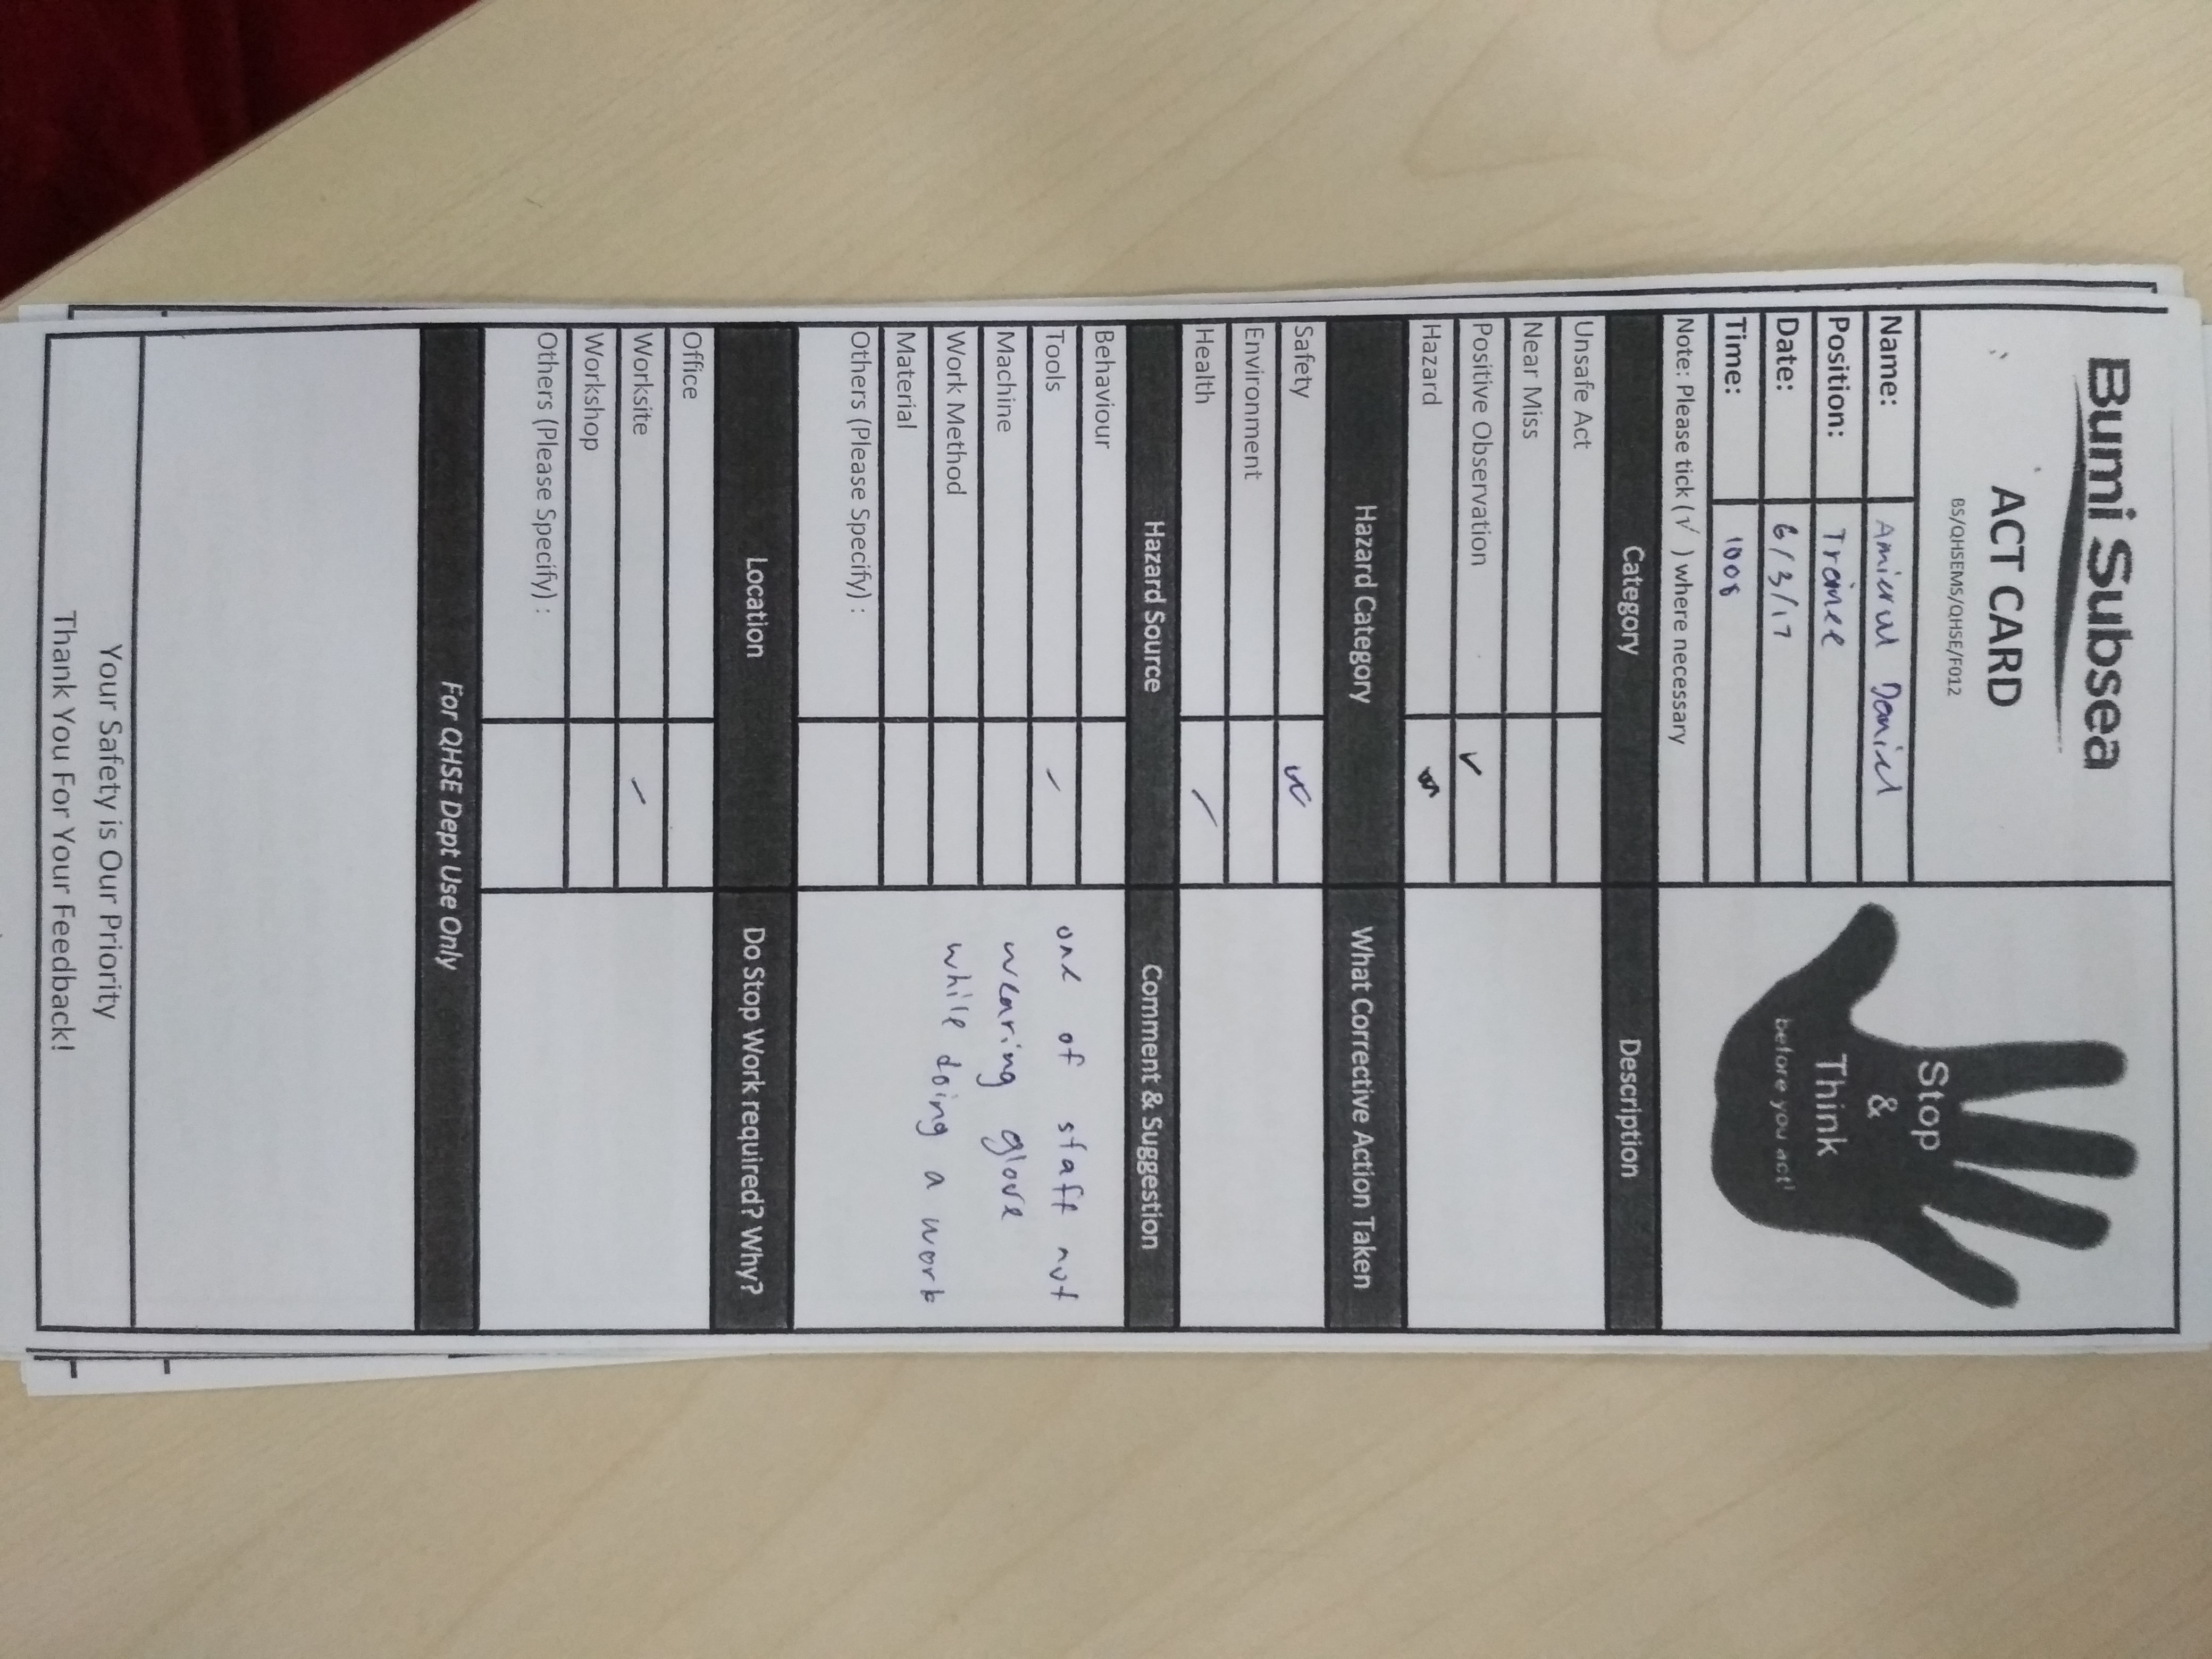 Bumi Subsea
ACT CARD
BS/QHSEMS/QHSE/F012
Stop
&
Think
before you act!
Name: Amierul Daniel
Position: Trainee
Date: 6/3/17
Time: 1008
Note: Please tick (√ ) where necessary
Category Description
Unsafe Act
Near Miss
Positive Observation ✓
Hazard
Hazard Category What Corrective Action Taken
Safety ✓
Environment
Health /
Hazard Source Comment & Suggestion
Behaviour
Tools /
Machine
Work Method
Material
Others (Please Specify) :
one of staff not
wearing glove
while doing a work
Location Do Stop Work required? Why?
Office
Worksite /
Workshop
Others (Please Specify) :
For QHSE Dept Use Only
Your Safety is Our Priority
Thank You For Your Feedback!